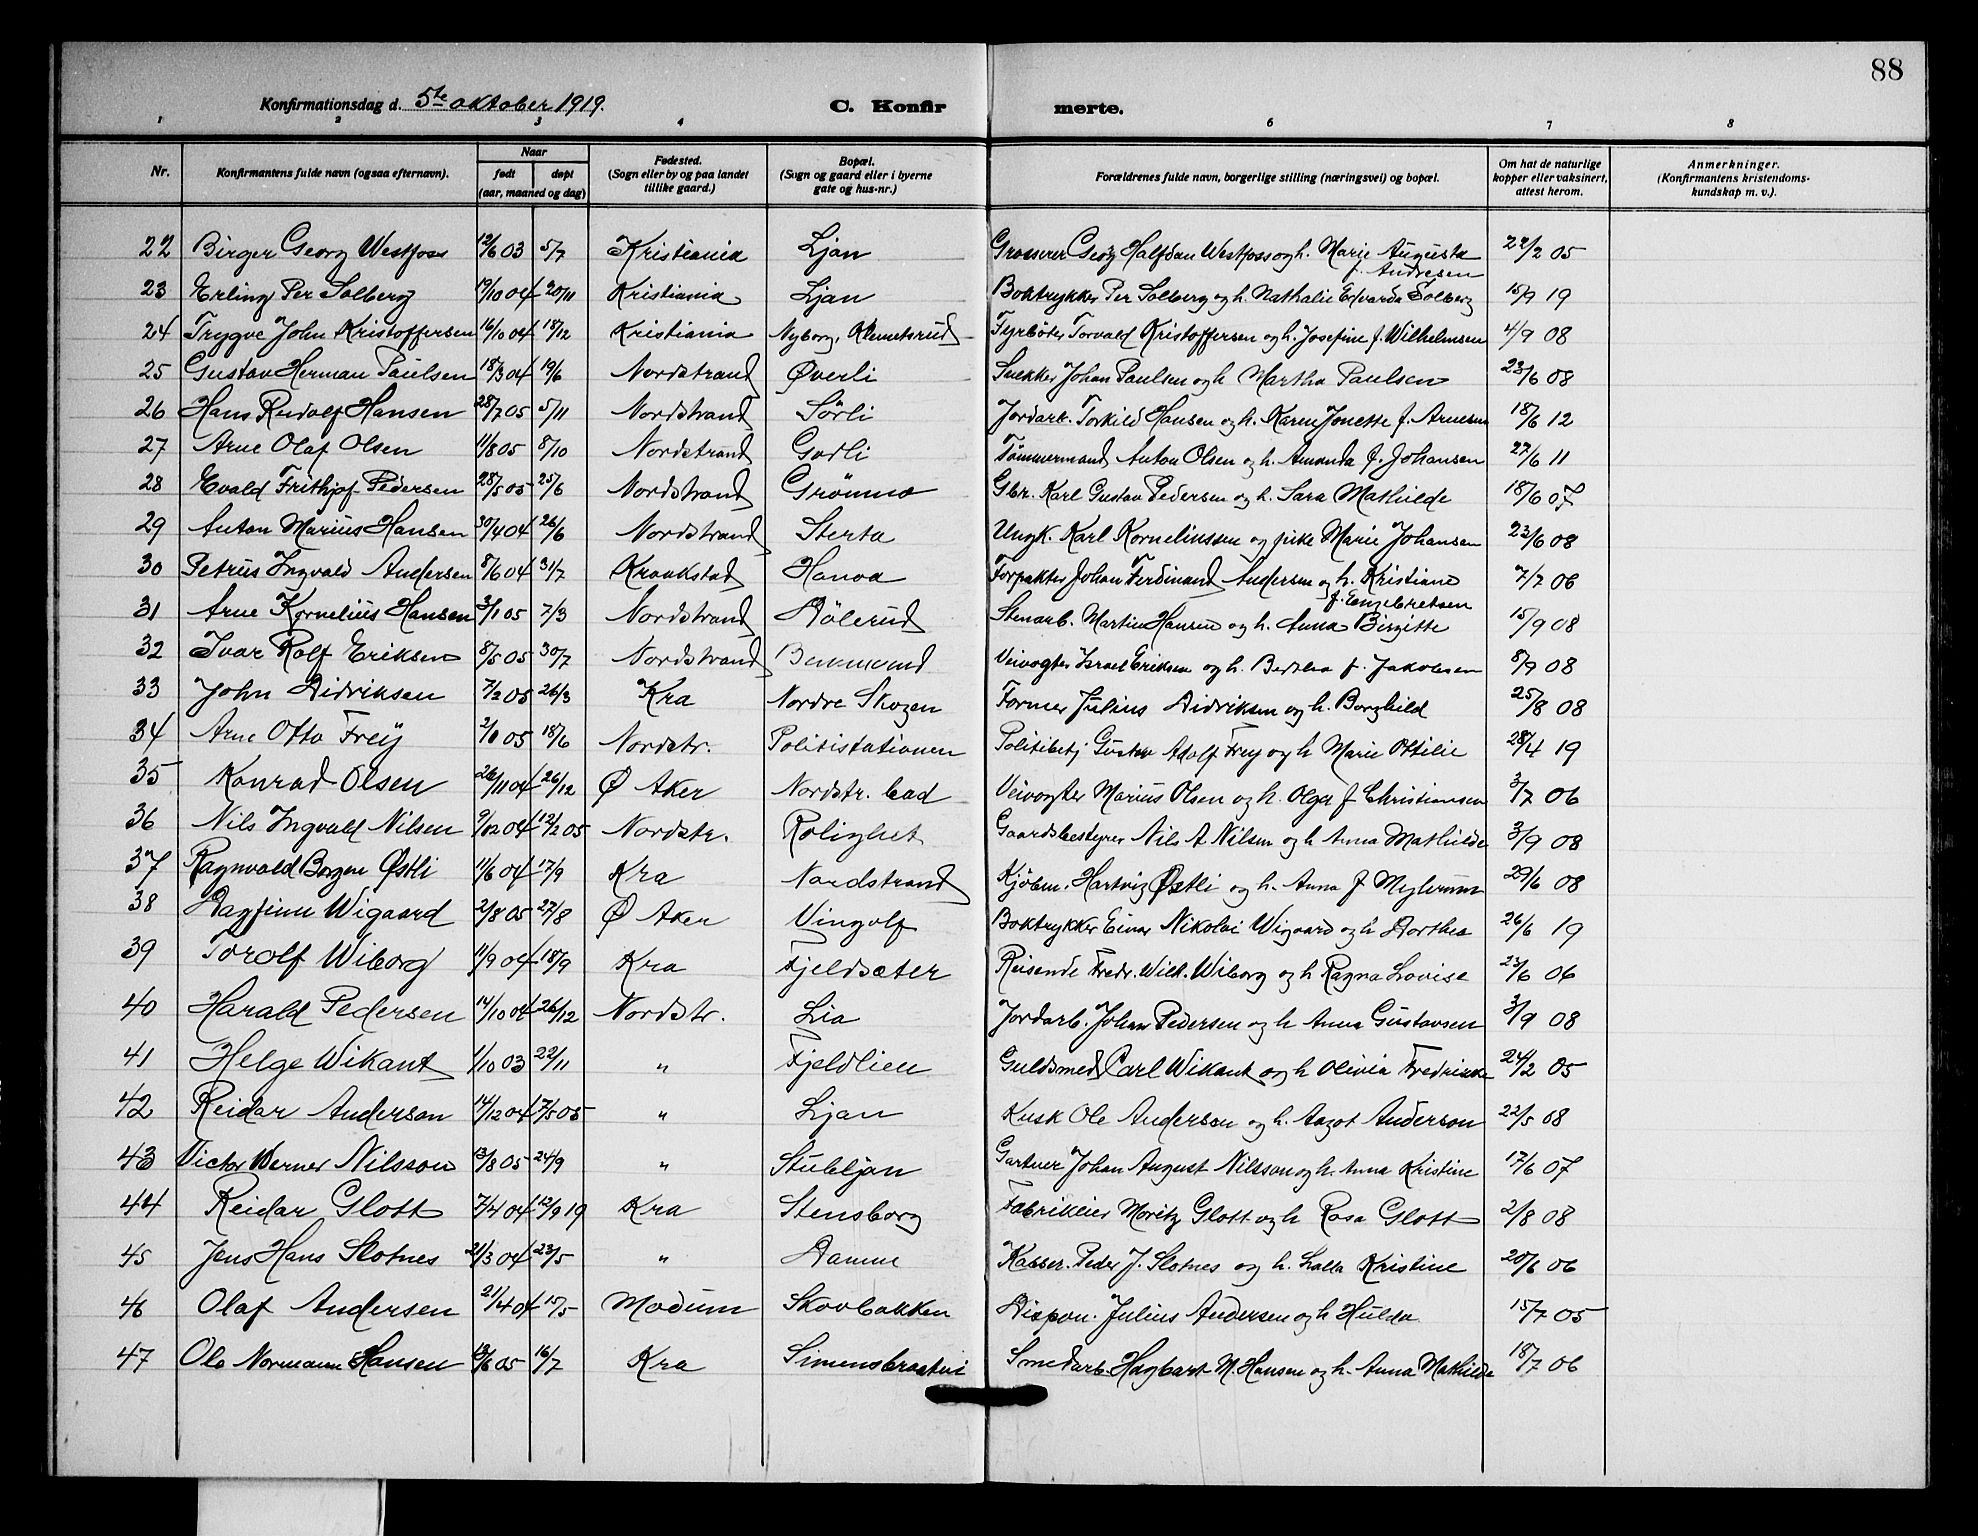 88
Konfirmationsdag d. 5te oktober 1919. C. Konfirmerte.
1 2 3 4 6 7 8
Nr. Konfirmantens fulde navn (ogsaa efternavn). Naar født døpt (aar, maaned og dag) Fødested. (Sogn eller by og paa landet tillike gaard.) Bopæl. (Sogn og gaard eller i byerne gate og hus-nr.) Forældrenes fulde navn, borgerlige stilling (næringsvei) og bopæl. Om hat de naturlige kopper eller vaksinert, attest herom. Anmerkninger. (Konfirmantens kristendomskundskap m. v.).
22 Birger Georg Westfoss 12/6 03 5/7 Kristiania Ljan Grosserer Georg Halfdan Westfoss og h. Marie Augusta f. Andresen 22/2 05
23 Erling Per Solberg 19/10 04 20/11 Kristiania Ljan Boktrykker Per Solberg og h. Nathalie Edvarda Solberg 15/9 19
24 Trygve John Kristoffersen 16/10 04 18/12 Kristiania Nyborg, Klemetsrud Fyrbøter Torvald Kristoffersen og h. Josefine f. Wilhelmsen 4/9 08
25 Gustav Herman Paulsen 18/3 04 19/6 Nordstrand Øverli Snekker Johan Paulsen og h Martha Paulsen 23/6 08
26 Hans Rudolf Hansen 28/7 05 5/11 Nordstrand Sørli Jordarb. Torkild Hansen og h. Karen Jonette f. Arnesen 18/6 12
27 Arne Olaf Olsen 11/8 05 8/10 Nordstrand Garli Tømmermand Anton Olsen og h. Amanda f. Johansen 27/6 11
28 Evald Frithjof Pedersen 28/5 05 25/6 Nordstrand Grønmo Gbr. Karl Gustav Pedersen og h. Sara Mathilde 18/6 07
29 Anton Marius Hansen 30/4 04 26/6 Nordstrand Sterta Ungk. Karl Kornelinssen og pike Marie Johansen 23/6 08
30 Petrus Ingvald Andersen 8/6 04 31/7 Kraakstad Hanoa Forpakter Johan Ferdinand Andersen og h. Kristiane f. Engebretsen 7/7 06
31 Arne Kornelius Hansen 3/1 05 7/3 Nordstrand Dølerud Stenarb. Martin Hansen og h. Anna Birgitte 15/9 08
32 Ivar Rolf Eriksen 8/5 05 30/7 Nordstrand Veivogter Israel Eriksen og h. f. Jakobsen 8/9 08
33 John Didriksen 7/2 05 26/3 Kra Nordre Skogen Former Julius Didriksen og h. Borghild 25/8 08
34 Arne Otto Frey 05 18/6 Nordstr. Politistationen Politibetj Gustav Adolf Frey og h Marie Ottilie 28/4 19
35 Konrad Olsen 26/11 04 26/12 Ø Aker Nordstr. bad Veivogter Marius Olsen og h. Olga f Christiansen 3/7 06
36 Nils Ingvald Nilsen 9/02 04 12/2 05 Nordstr. Rolighet Gaardsbestyrer Nils A Nilsen og h Anna Mathilde 3/9 08
37 Ragnvald Borgen Østli 11/6 04 17/9 Kra Nordstrand Kjøbm. Hartvig Østli og h. Anna f Myhrum 27/6 08
38 Dagfinn Wigaard 2/8 05 27/8 Ø Aker Vingolf Boktrykker Einar Nikolai Wigaard og h Dorthea 26/6 19
39 Torolf Wiborg 11/9 04 18/9 Kra Fjeldsæter Reisende Fredr. Wilh. Wiborg og h Ragna Lovise 23/6 06
40 Harald Pedersen 14/10 04 26/12 Nordstr. Lia Jordarb. Johan Pedersen og h Anna Gustavsen 3/9 08
41 Helge Wikant 1/10 03 22/11 " Fjeldlien Guldsmed Carl Wikant og h Olivia Fredrikke 24/2 05
42 Reidar Anderson 14/12 04 7/5 05 " Ljan Kusk Ole Anderson og h. Aagot Anderson 22/5 08
43 Victor Werner Nilsson 13/8 05 24/9 " Stubljan Gartner Johan August Nilsson og h. Anna Kristine 17/6 07
44 Reidar Glott 7/4 04 12/9 19 Kra Stensborg Fabrikeier Moritz Glott og h Rosa Glott 2/8 08
45 Jens Hans Slotnes 21/3 04 23/5 " Damme Kasser. Peder J. Slotnes og h. Lalla Kristine 20/6 06
46 Olaf Andersen 21/4 04 15/5 Modum Skovbakken Dispon. Julius Andersen og h Hulda 15/7 05
47 Ole Normann Hansen 13/6 05 16/7 Kra Simensbraatvei Smedarb. Hagbart M. Hansen og h. Anna Mathilde 18/7 06